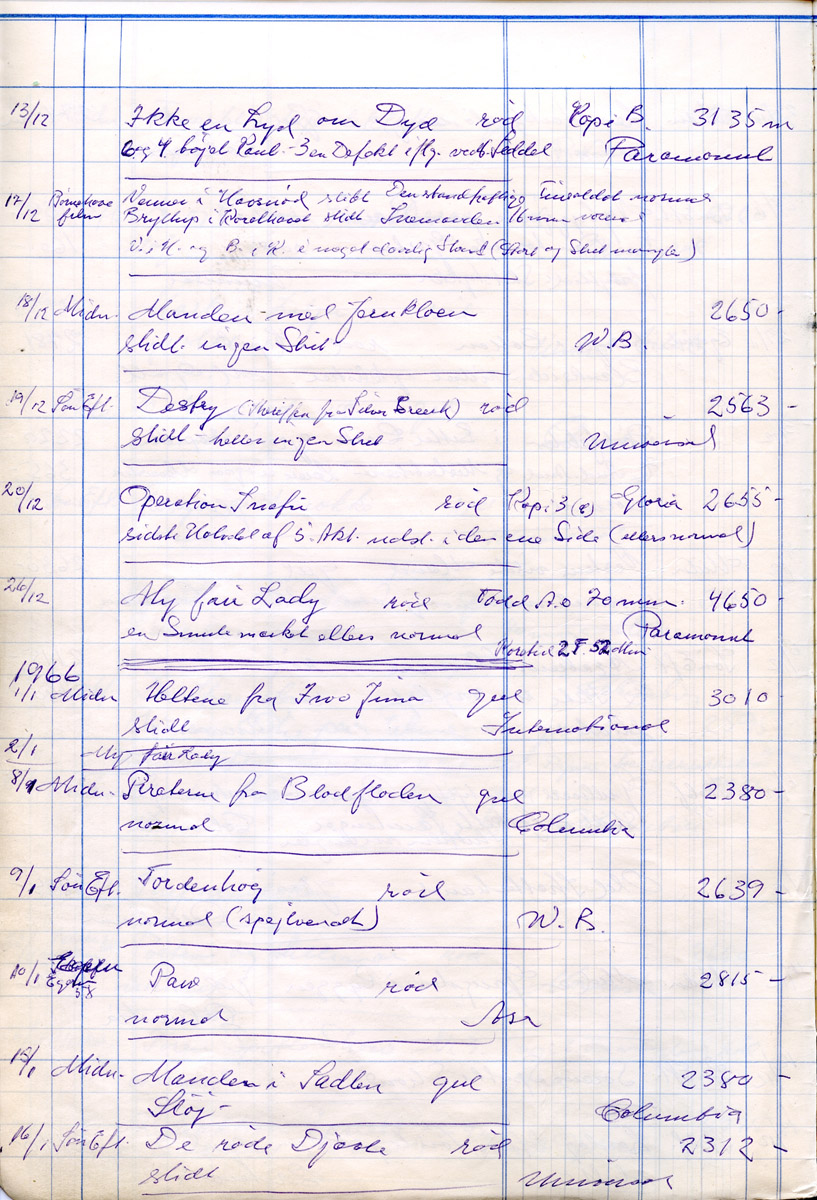 13/12 Ikke en Lyd om Dyd rød Kopi B. 3135 m
6 og 4 bøjet Kant - 3 en Defekt iflg. vedh. Seddel Paramount
17/12 Børnehave Venner i Havsnød slidt Den standhaftige Tinsoldat normal
film Brychup i Kordhand slidt Snemanden 16 mm normal
V. i H. og B. i K. i noget daarlig Stand (Start og Slut mangler)
18/12 Midn. Manden med Jernkloen 2650 -
slidt - ingen Slut W.B.
19/12 Søn Eft. Destry (Sheriffen fra Silver Creek) rød 2563 -
slidt - heller ingen Slut Universal
20/12 Operation Snafu rød Kopi 3 Gloria 2655 -
sidste Halvdel af 5. Akt. udst. i den ene Side (ellers normal)
26/12 My fair Lady rød Todd A.O 70 mm. 4650 -
en Smule mærket ellers normal Paramount
2 T. 52 Min
1966
1/1 Midn Heltene fra Iwo Jima gul 3010 -
slidt International
2/1 My fair Lady
8/1 Midn - Piraterne fra Blodfloden gul 2380 -
normal Columbia
9/1 Søn Eft. Tordenhøg rød 2639 -
normal (spejlvendt) W.B.
10/1 Paw rød 2815 -
normal Asa
15/1 Midn - Manden i Sadlen gul 2380 -
Støj - Columbia
16/1 Søn Eft. De røde Djævle rød 2312 -
slidt Universal